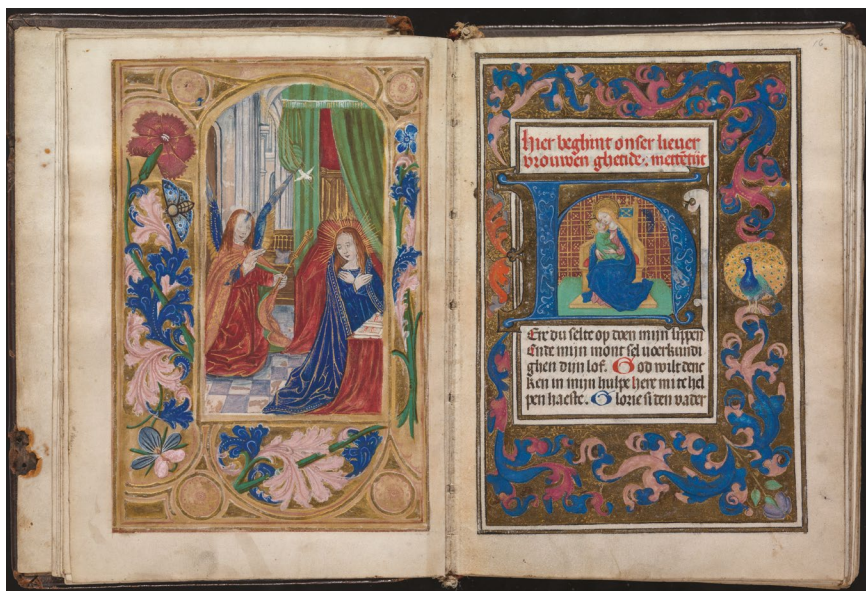 16
hier beghint onser liever
vrouwen ghetide. mettẽ tijt
H
Ere du selte op doen mijn lippen
Ende mijn mont sel voerkundi
ghen dijn lof. God wilt denc
ken in mijn hulpe here mi te hel
pen haeste. Glorie si den vader